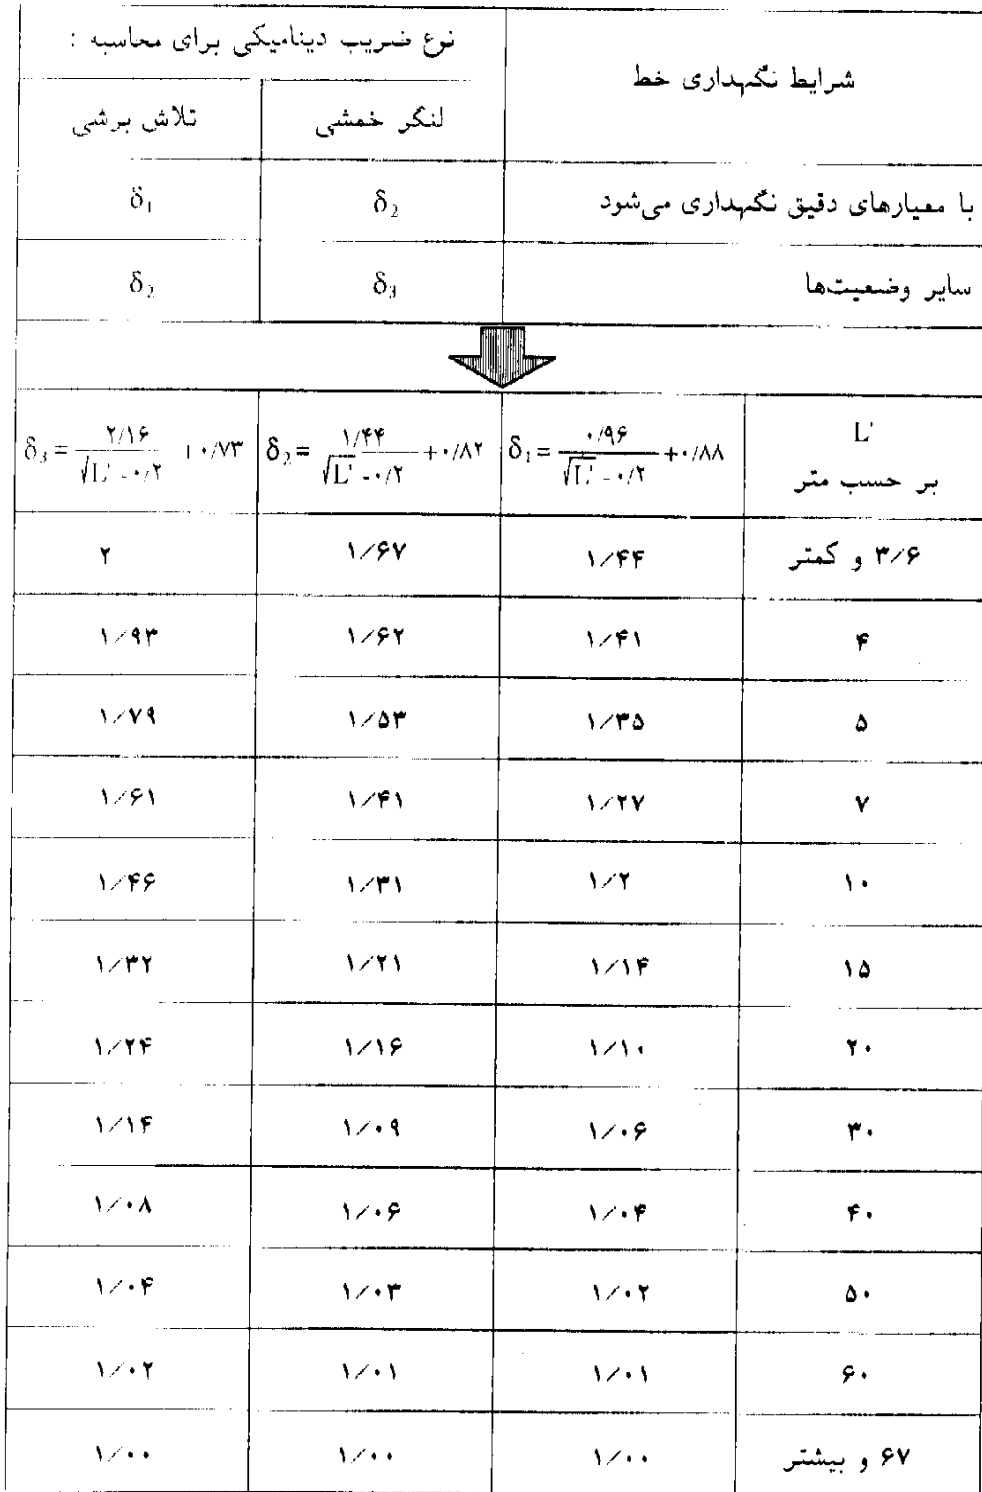 نوع ضریب دینامیکی برای محاسبه :
شرایط نگهداری خط
لنگر خمشی
تلاش برشی
با معیارهای دقیق نگهداری می‌شود
δ₂
δ₁
سایر وضعیت‌ها
δ₃
δ₂
L'
بر حسب متر
δ₁ = ۰/۹۶ / (√L' - ۰/۲) + ۰/۸۸
δ₂ = ۱/۴۴ / (√L' - ۰/۲) + ۰/۸۲
δ₃ = ۲/۱۶ / (√L' - ۰/۲) + ۰/۷۳
۳/۶ و کمتر ۱/۴۴ ۱/۶۷ ۲
۴ ۱/۴۱ ۱/۶۲ ۱/۹۳
۵ ۱/۳۵ ۱/۵۳ ۱/۷۹
۷ ۱/۲۷ ۱/۴۱ ۱/۶۱
۱۰ ۱/۲ ۱/۳۱ ۱/۴۶
۱۵ ۱/۱۴ ۱/۲۱ ۱/۳۲
۲۰ ۱/۱۰ ۱/۱۶ ۱/۲۴
۳۰ ۱/۰۶ ۱/۰۹ ۱/۱۴
۴۰ ۱/۰۴ ۱/۰۶ ۱/۰۸
۵۰ ۱/۰۲ ۱/۰۳ ۱/۰۴
۶۰ ۱/۰۱ ۱/۰۱ ۱/۰۲
۶۷ و بیشتر ۱/۰۰ ۱/۰۰ ۱/۰۰